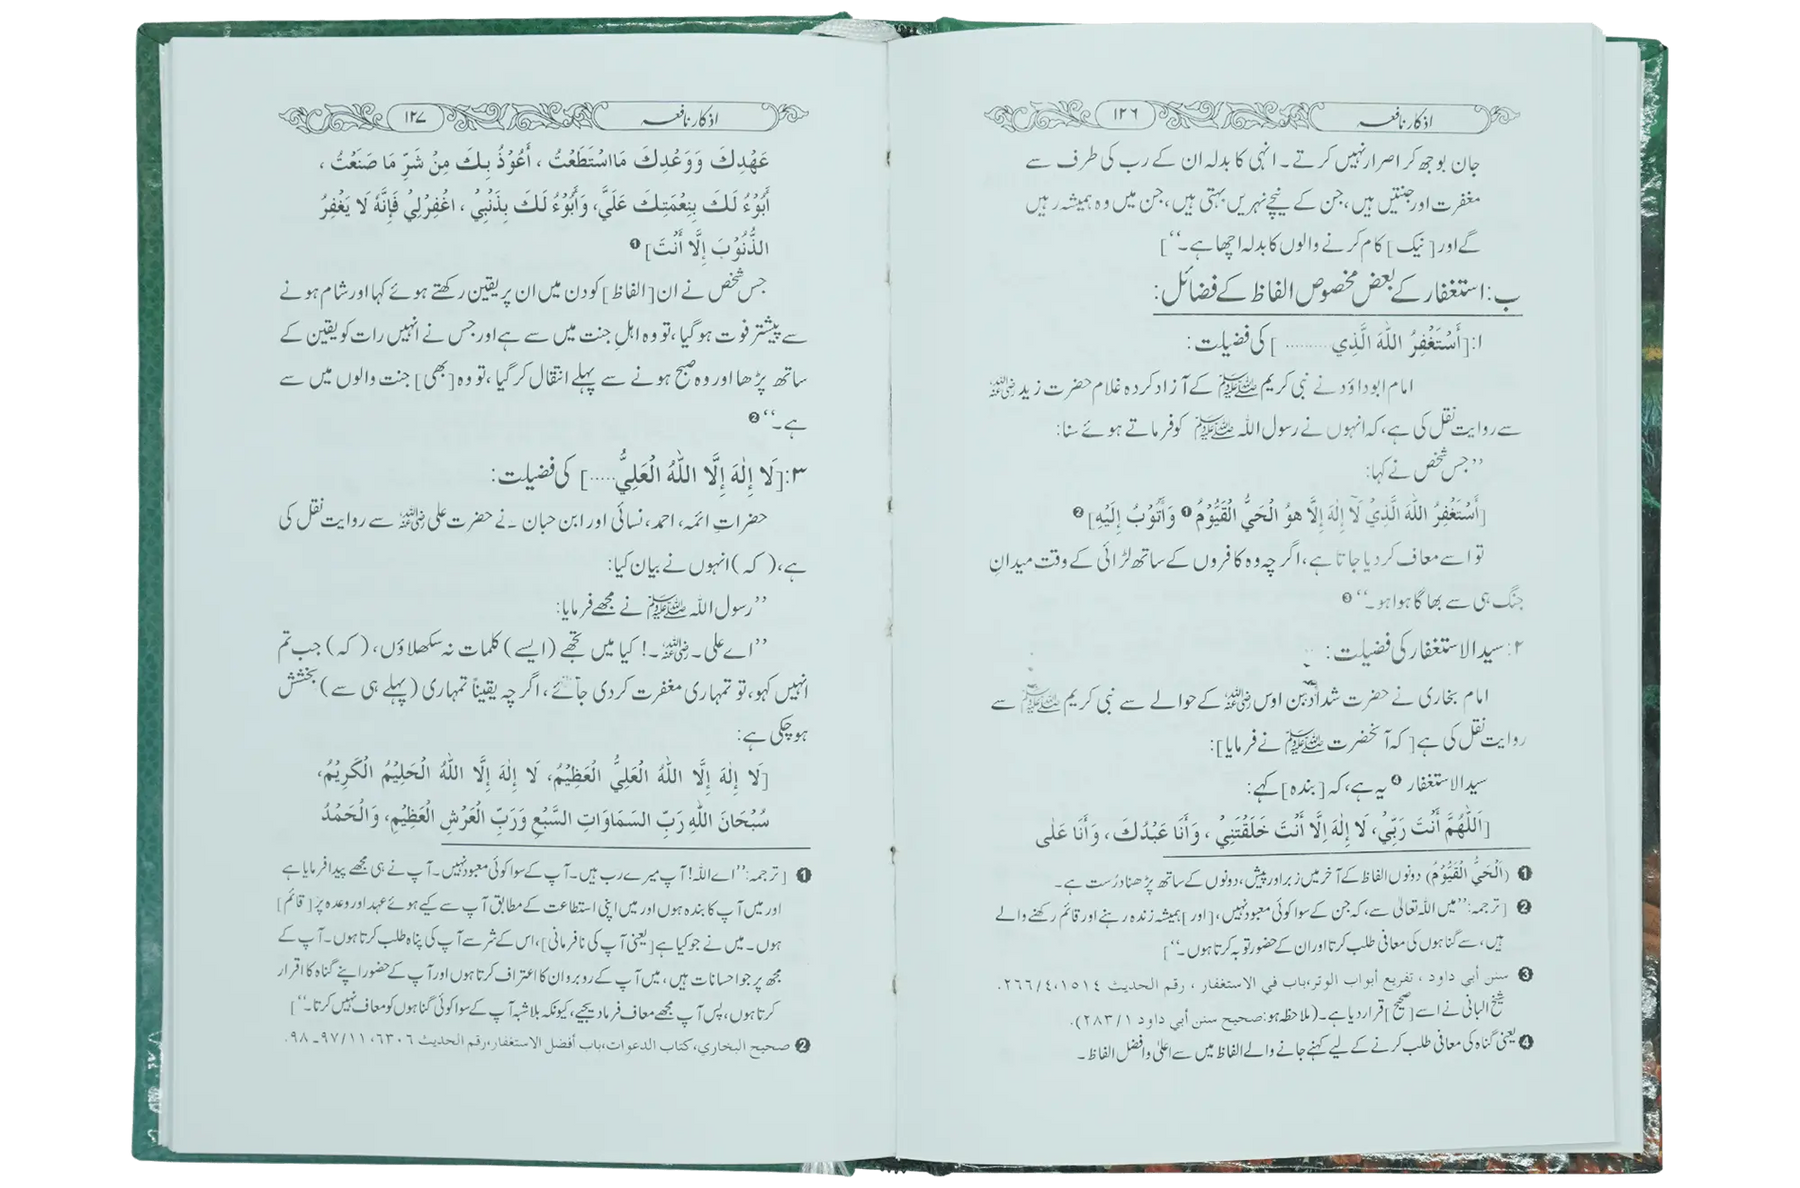 اذکار نافعہ
۱۲۶
جان بوجھ کر اصرار نہیں کرتے۔ انہی کا بدلہ ان کے رب کی طرف سے
مغفرت اور جنتیں ہیں، جن کے نیچے نہریں بہتی ہیں، جن میں وہ ہمیشہ رہیں
گے اور [نیک] کام کرنے والوں کا بدلہ اچھا ہے۔‘‘]
ب: استغفار کے بعض مخصوص الفاظ کے فضائل:
ا: [أَسْتَغْفِرُ اللّٰهَ الَّذِي .........] کی فضیلت:
امام ابوداؤد نے نبی کریم ﷺ کے آزاد کردہ غلام حضرت زید رضی اللہ عنہ
سے روایت نقل کی ہے، کہ انہوں نے رسول اللہ ﷺ کو فرماتے ہوئے سنا:
’’جس شخص نے کہا:
[أَسْتَغْفِرُ اللّٰهَ الَّذِيْ لَآ إِلٰهَ إِلَّا هُوَ الْحَيُّ الْقَيُّوْمُ ❶ وَأَتُوْبُ إِلَيْهِ] ❷
تو اسے معاف کر دیا جاتا ہے، اگرچہ وہ کافروں کے ساتھ لڑائی کے وقت میدانِ
جنگ ہی سے بھاگا ہوا ہو۔‘‘ ❸
۲: سید الاستغفار کی فضیلت:
امام بخاری نے حضرت شداد بن اوس رضی اللہ عنہ کے حوالے سے نبی کریم ﷺ سے
روایت نقل کی ہے [کہ آنحضرت ﷺ نے فرمایا]:
سید الاستغفار ❹ یہ ہے، کہ [بندہ] کہے:
[اَللّٰهُمَّ أَنْتَ رَبِّيْ، لَا إِلٰهَ إِلَّا أَنْتَ خَلَقْتَنِيْ، وَأَنَا عَبْدُكَ، وَأَنَا عَلٰى
❶ (اَلْحَيُّ الْقَيُّوْمُ) دونوں الفاظ کے آخر میں زبر اور پیش، دونوں کے ساتھ پڑھنا درست ہے۔
❷ [ترجمہ: ’’میں اللہ تعالیٰ سے، کہ جن کے سوا کوئی معبود نہیں، [اور] ہمیشہ زندہ رہنے اور قائم رکھنے والے
ہیں، سے گناہوں کی معافی طلب کرتا اور ان کے حضور توبہ کرتا ہوں۔‘‘]
❸ سنن أبي داود، تفريع أبواب الوتر، باب في الاستغفار، رقم الحديث ١٥١٤، ٤/٢٦٦.
شیخ البانی نے اسے [صحیح] قرار دیا ہے۔ (ملاحظہ ہو: صحيح سنن أبي داود ١/٢٨٣).
❹ یعنی گناہ کی معافی طلب کرنے کے لیے کہنے جانے والے الفاظ میں سے اعلیٰ و افضل الفاظ۔
اذکار نافعہ
۱۲۷
عَهْدِكَ وَوَعْدِكَ مَا اسْتَطَعْتُ، أَعُوْذُ بِكَ مِنْ شَرِّ مَا صَنَعْتُ،
أَبُوْءُ لَكَ بِنِعْمَتِكَ عَلَيَّ، وَأَبُوْءُ لَكَ بِذَنْبِيْ، اغْفِرْلِيْ فَإِنَّهُ لَا يَغْفِرُ
الذُّنُوْبَ إِلَّا أَنْتَ] ❶
جس شخص نے ان [الفاظ] کو دن میں ان پر یقین رکھتے ہوئے کہا اور شام ہونے
سے پیشتر فوت ہو گیا، تو وہ اہلِ جنت میں سے ہے اور جس نے انہیں رات کو یقین کے
ساتھ پڑھا اور وہ صبح ہونے سے پہلے انتقال کر گیا، تو وہ [بھی] جنت والوں میں سے
ہے۔‘‘ ❷
۳: [لَا إِلٰهَ إِلَّا اللّٰهُ الْعَلِيُّ.....] کی فضیلت:
حضراتِ ائمہ، احمد، نسائی اور ابن حبان نے حضرت علی رضی اللہ عنہ سے روایت نقل کی
ہے، (کہ) انہوں نے بیان کیا:
’’رسول اللہ ﷺ نے مجھے فرمایا:
’’اے علی۔ رضی اللہ عنہ۔! کیا میں تجھے (ایسے) کلمات نہ سکھلاؤں، (کہ) جب تم
انہیں کہو، تو تمہاری مغفرت کر دی جائے، اگرچہ یقیناً تمہاری (پہلے ہی سے) بخشش
ہو چکی ہے:
[لَا إِلٰهَ إِلَّا اللّٰهُ الْعَلِيُّ الْعَظِيْمُ، لَا إِلٰهَ إِلَّا اللّٰهُ الْحَلِيْمُ الْكَرِيْمُ،
سُبْحَانَ اللّٰهِ رَبِّ السَّمَاوَاتِ السَّبْعِ وَرَبِّ الْعَرْشِ الْعَظِيْمِ، وَالْحَمْدُ
❶ [ترجمہ: ’’اے اللہ! آپ میرے رب ہیں۔ آپ کے سوا کوئی معبود نہیں۔ آپ نے ہی مجھے پیدا فرمایا ہے
اور میں آپ کا بندہ ہوں اور میں اپنی استطاعت کے مطابق آپ سے کیے ہوئے عہد اور وعدہ پر [قائم]
ہوں۔ میں نے جو کیا ہے [یعنی آپ کی نافرمانی]، اس کے شر سے آپ کی پناہ طلب کرتا ہوں۔ آپ کے
مجھ پر جو احسانات ہیں، میں آپ کے روبرو ان کا اعتراف کرتا ہوں اور آپ کے حضور اپنے گناہ کا اقرار
کرتا ہوں، پس آپ مجھے معاف فرما دیجیے، کیونکہ بلاشبہ آپ کے سوا کوئی گناہوں کو معاف نہیں کرتا۔‘‘]
❷ صحيح البخاري، كتاب الدعوات، باب أفضل الاستغفار، رقم الحديث ٦٣٠٦، ١١/٩٧ـ٩٨.